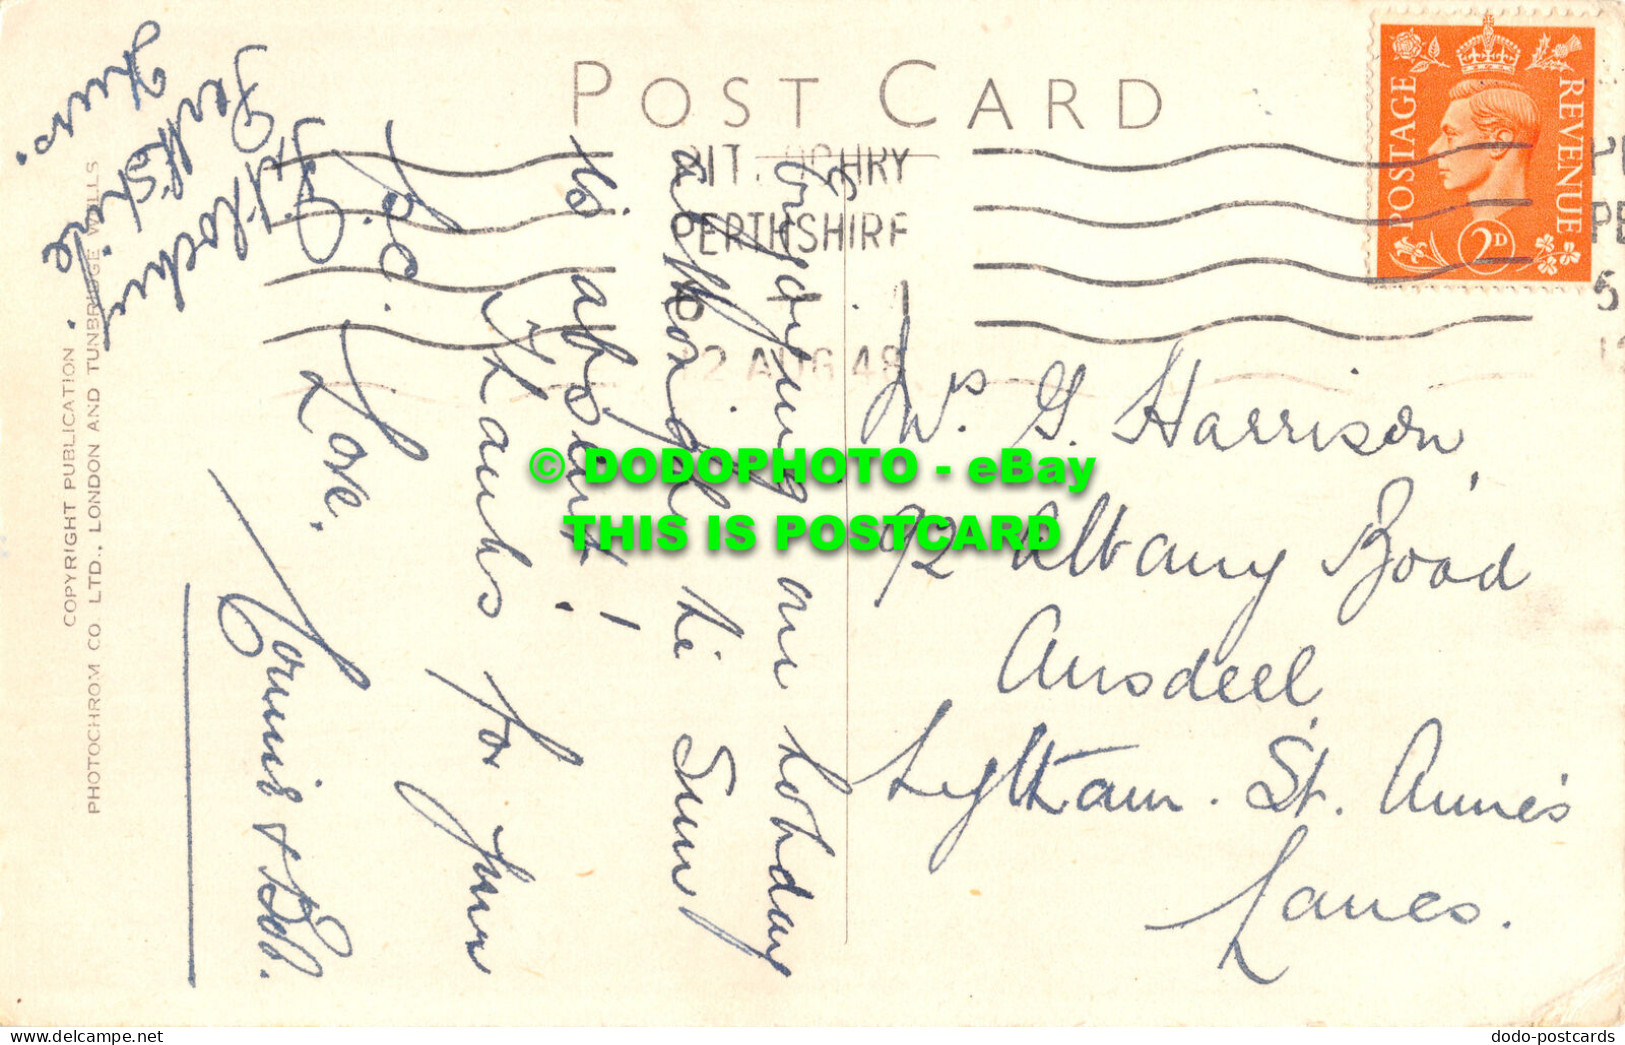 POST CARD
POSTAGE
REVENUE
2D
PIT OCHRY
PERTHSHIRE
22 AUG 48
Pitlochry
Perthshire
Thurs.
Enjoying our holiday
although the Sun
is absent!
Thanks for your
p.c.
Love.
Connis & Bob.
Mrs G. Harrison,
92 Albany Road
Ansdell,
Lytham. St. Anne's
Lancs.
COPYRIGHT PUBLICATION.
PHOTOCHROM CO. LTD., LONDON AND TUNBRIDGE WELLS
© DODOPHOTO - eBay
THIS IS POSTCARD
dodo-postcards